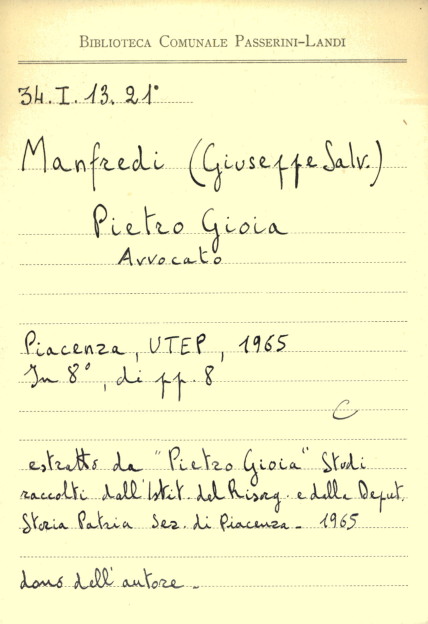 BIBLIOTECA COMUNALE PASSERINI-LANDI
34.I.13.21°
Manfredi (Giuseppe Salv.)
Pietro Gioia
Avvocato
Piacenza, UTEP, 1965
In 8°, di pp. 8
C
estratto da "Pietro Gioia" Studi
raccolti dall'Istit. del Risorg. e della Deput.
Storia Patria Sez. di Piacenza - 1965
dono dell'autore -